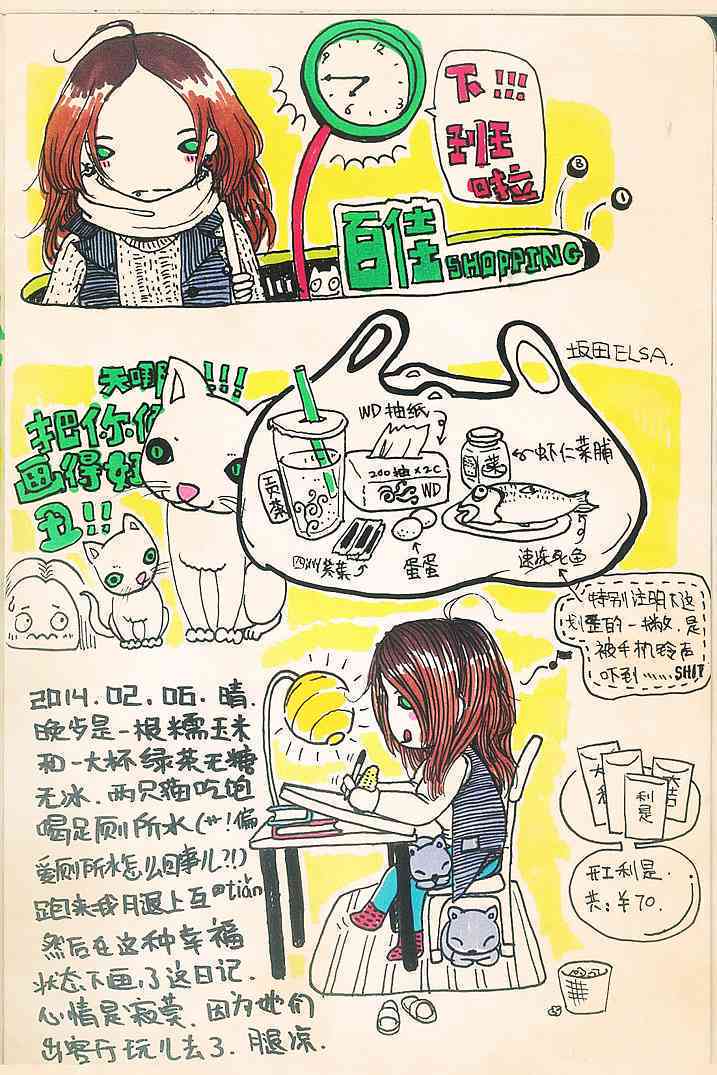 9
12
3
6
下!!!
班
啦
8
1
百佳SHOPPING
坂田ELSA.
天哪!!!
把你们
画得好
丑!!
WD抽纸
200抽×2C
WD
贡茶
菜
虾仁菜脯
四洲紫菜
蛋蛋
速冻死鱼
特别注明下这
划歪的一撇.是
被手机铃声
吓到……SHIT
2014.02.06.晴.
晚步是一根糯玉米
和一大杯绿茶无糖
无冰.两只猫吃饱
喝足厕所水(艹!偏
爱厕所水怎么回事儿?!)
跑来我月退上互tiǎn
然后在这种幸福
状态下画了这日记.
心情是寂寞.因为她们
出客厅玩儿去了.腿凉.
大利
利是
大吉
开工利是.
共:¥70.